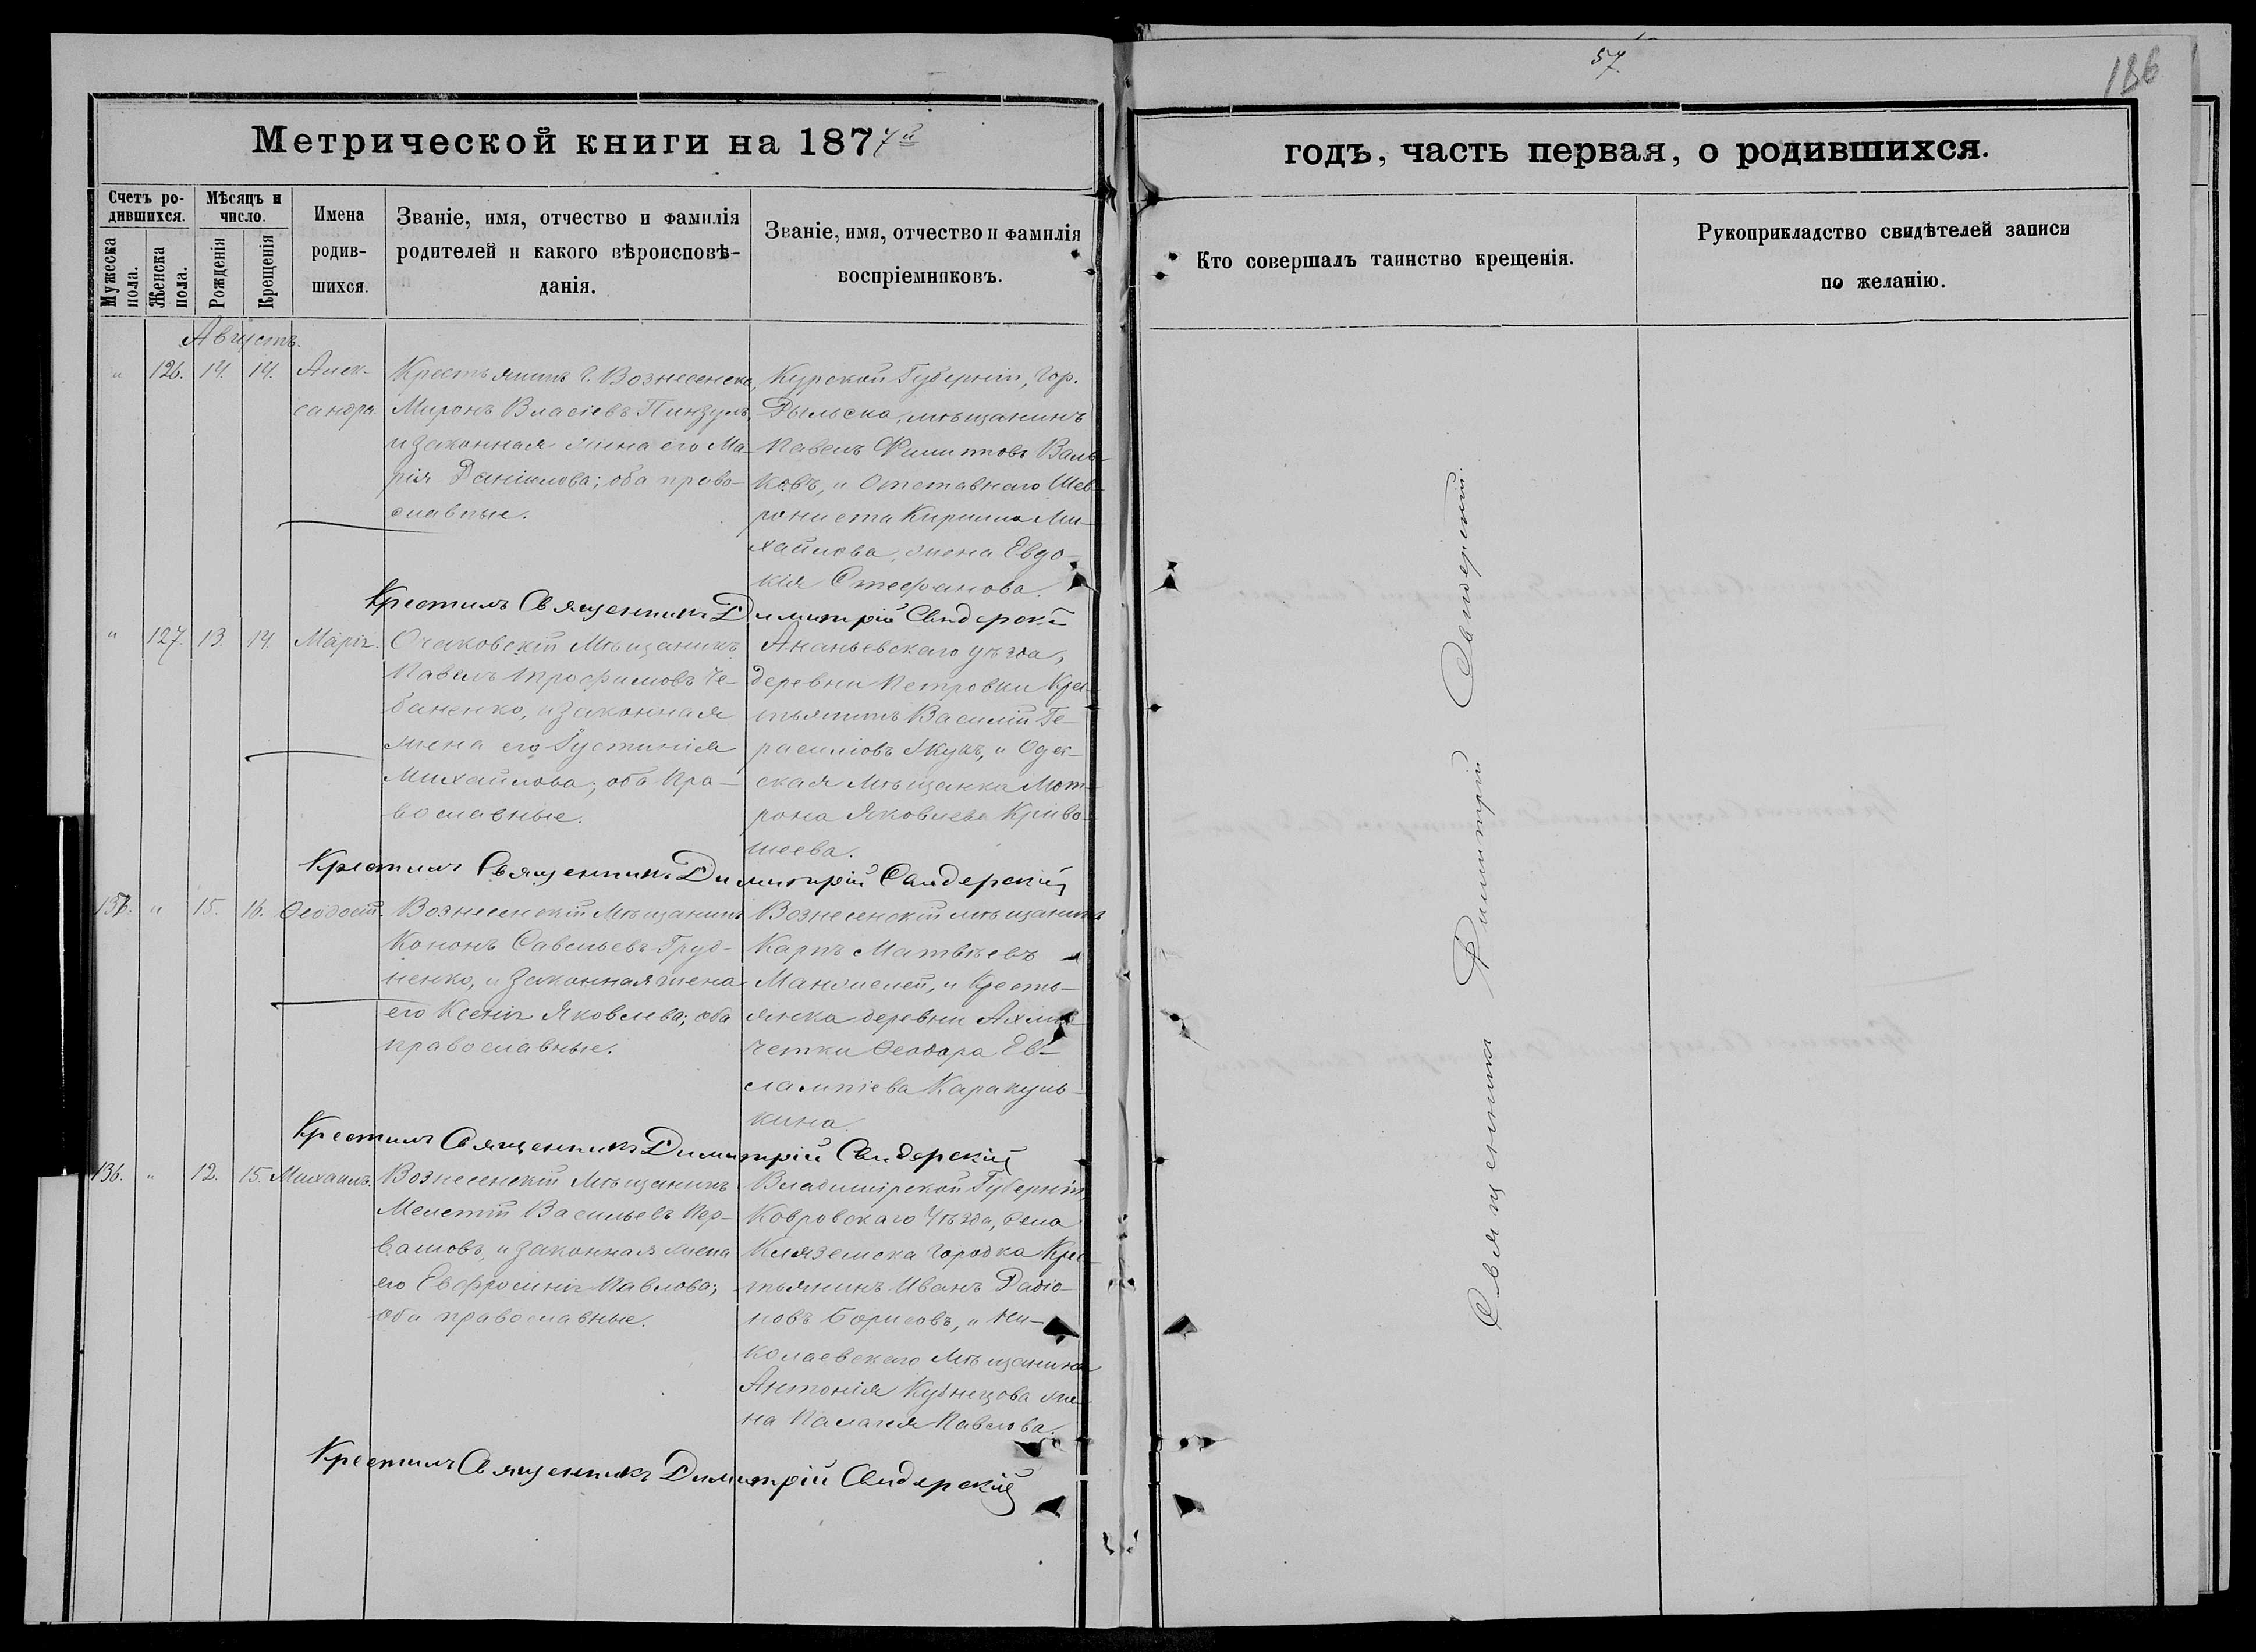 57.
186
Метрической книги на 1877й
годъ, часть первая, о родившихся.
Счетъ ро-
дившихся.
Мужеска пола.
Женска пола.
Мѣсяцъ и
число.
Рожденія
Крещенія
Имена
родив-
шихся.
Званіе, имя, отчество и фамилія
родителей и какого вѣроисповѣ-
данія.
Званіе, имя, отчество и фамилія
воспріемниковъ.
Кто совершалъ таинство крещенія.
Рукоприкладство свидѣтелей записи
по желанію.
Августъ.
" 126. 14. 14.
Алек-
сандра.
Крестьянинъ г. Вознесенска,
Миронъ Власіевъ Пинзулъ,
и законная жена его Ма-
рія Даніилова; оба право-
славные.
Курской Губерніи, Гор.
Рыльска, мѣщанинъ
Павелъ Филипповъ Валь-
ковъ, и Отставнаго
Кирилла Ми-
хайлова, жена Евдо-
кія Стефанова.
Крестилъ Священникъ Димитрій Свидерскій
" 127. 13. 14. Марія.
Очаковскій Мѣщанинъ
Павелъ Трофимовъ Че-
баненко, и законная
жена его Іустинія
Михайлова; оба Пра-
вославные.
Ананьевскаго уѣзда,
деревни Петровки Крес-
тьянинъ Василій Ге-
расимовъ Якушъ, и Одес-
ская Мѣщанка Мот-
рона Яковлева Криво-
шеева.
Крестилъ Священникъ Димитрій Свидерскій
137. " 15. 16. Ѳеодосій.
Вознесенскій Мѣщанинъ
Кононъ Савельевъ Груд-
ненко, и законная жена
его Ксенія Яковлева; оба
православные.
Вознесенскій мѣщанинъ
Карпъ Матвѣевъ
и Кресть-
янка деревни Ахме-
четки Ѳеодора Ев-
лампіева Каракуль-
кина.
Крестилъ Священникъ Димитрій Свидерскій
136. " 12. 15. Михаилъ.
Вознесенскій Мѣщанинъ
Мелетій Васильевъ Пер-
вашовъ, и законная жена
его Евфросинія Павлова;
оба православные.
Владимірской Губерніи,
Ковровскаго Уѣзда, села
Кляземска городка Крес-
тьянинъ Иванъ Радіо-
новъ Борисовъ, и Ни-
колаевскаго Мѣщанина
Антонія Кузнецова же-
на Палагея Павлова.
Крестилъ Священникъ Димитрій Свидерскій
Священникъ Димитрій Свидерскій